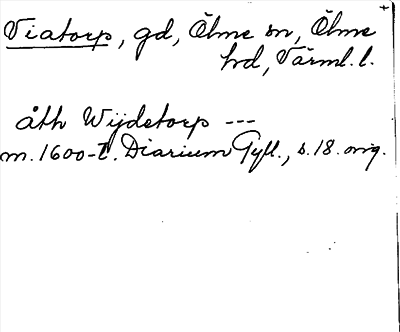 Viatorp, gd, Ölme sn, Ölme
hd, Värml. l.
åth Wijdetorp ---
m. 1600-t. Diarium Gyll., s. 18. orig.